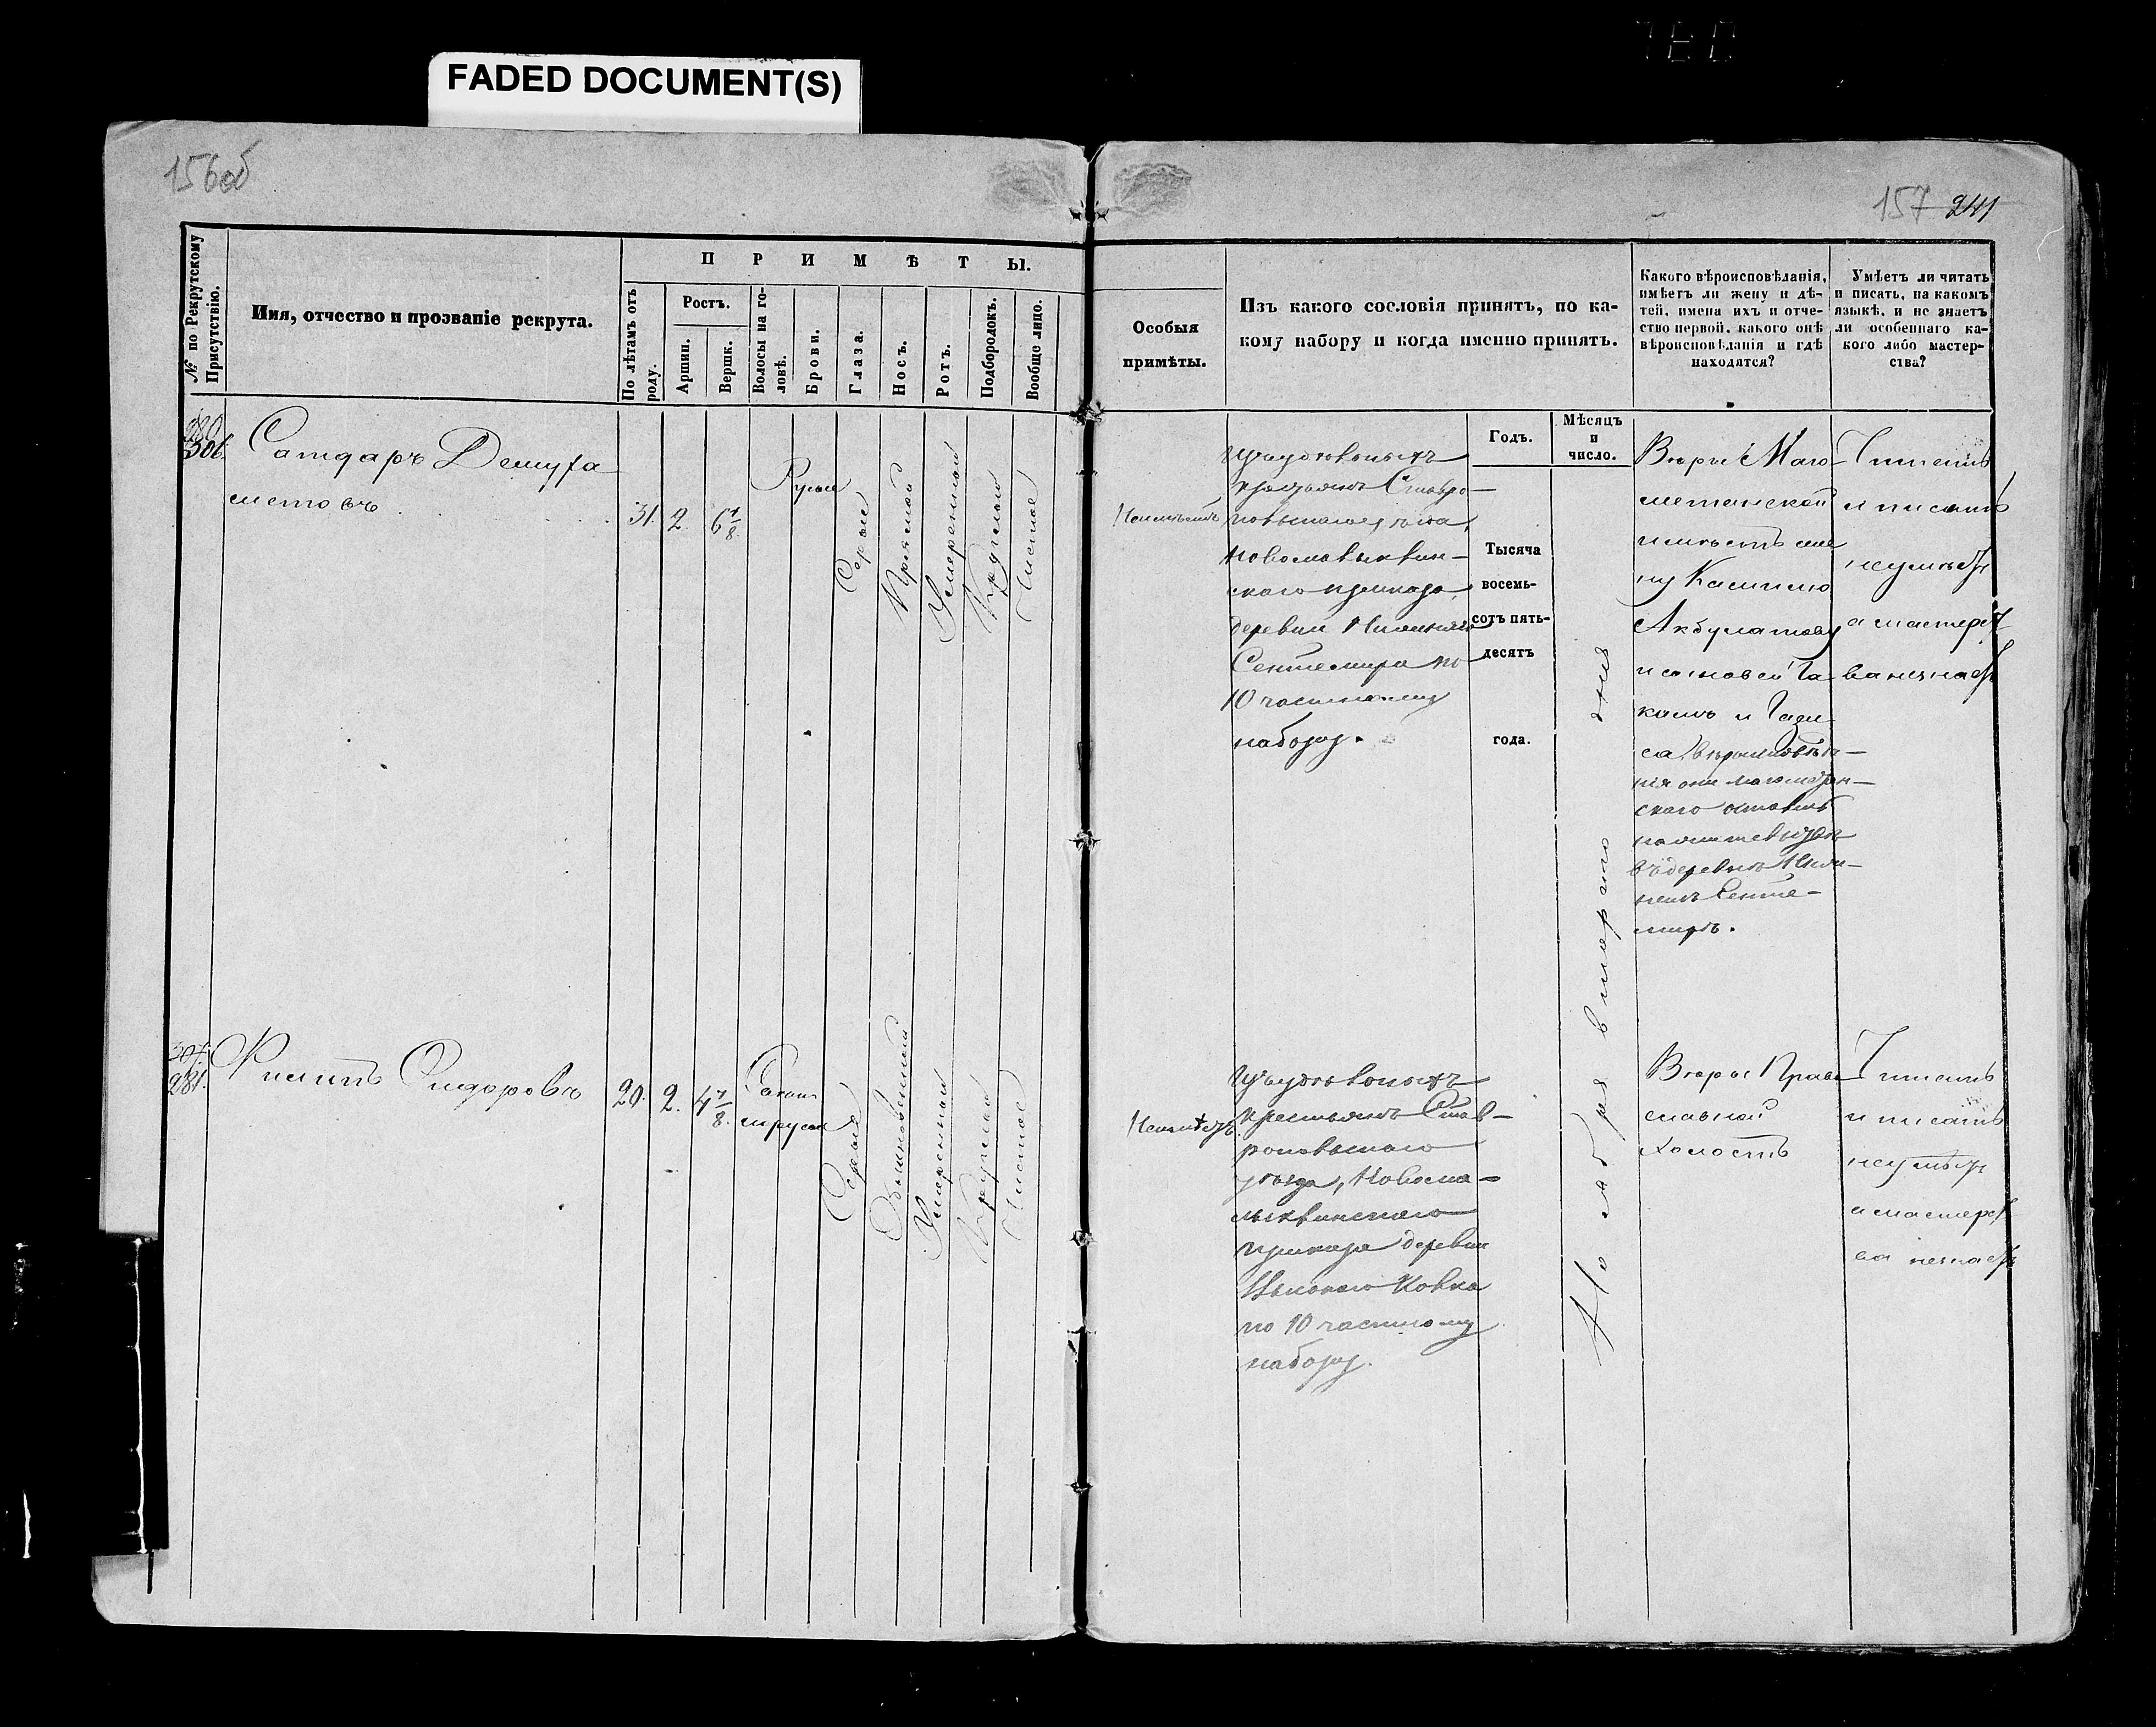 FADED DOCUMENT(S)
156об
157 241
№ по Рекрутскому Присутствію.
Имя, отчество и прозваніе рекрута.
ПРИМѢТЫ.
По лѣтамъ отъ роду.
Ростъ.
Аршин.
Вершк.
Волосы на головѣ.
Брови.
Глаза.
Носъ.
Ротъ.
Подбородокъ.
Вообще лицо.
Особыя
примѣты.
Изъ какого сословія принятъ, по ка-
кому набору и когда именно принятъ.
Какого вѣроисповѣданія,
имѣетъ ли жену и дѣ-
тей, имена ихъ и отче-
ство первой, какого онѣ
вѣроисповѣданія и гдѣ
находятся?
Умѣетъ ли читать
и писать, на какомъ
языкѣ, и не знаетъ
ли особеннаго ка-
кого либо мастер-
ства?
Годъ.
Мѣсяцъ
и
число.
280
306.
Сатдаръ Демуха
метовъ
31. 2. 6 1/8.
Русые
Серые
Прямой
Умеренный
Круглый
Чистое
Неимѣетъ
Изъ удѣльныхъ
крестьянъ Ставро-
польскаго уѣзда,
Новомалыклин-
скаго приказа,
деревни
Сентемира по
10 частному
набору.
Тысяча
восемь-
сотъ пять-
десятъ
года.
Ноября втораго дня
Вѣры Маго-
метанской
имѣетъ же
ну
и сыновей
скаго
въ деревнѣ
Сенте-
мирѣ.
Читать
и писать
неумѣетъ
а мастерст
ва незнаетъ
307.
281.
Филипъ Сидоровъ
20. 2. 4 7/8.
Темно
русые
Серые
Обыкновенный
Умеренный
Круглый
Чистое
Неимѣетъ
Изъ удѣльныхъ
крестьянъ Став-
ропольскаго
уѣзда, Новома-
лыклинскаго
приказа деревни
по 10 частному
набору.
Вѣры Право
славной
холостъ
Читать
и писать
неумѣетъ
а мастерст
ва незнаетъ